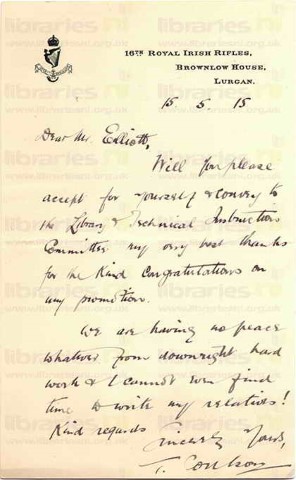 16TH ROYAL IRISH RIFLES,
BROWNLOW HOUSE,
LURGAN.
15 5 15
Dear Mr. Elliott,
Will you please
accept for yourself & convey to
the Library & Technical Instruction
Committee my very best thanks
for the kind congratulations on
my promotion.
We are having no peace
whatever from downright hard
work & I cannot even find
time to write my relatives!
Kind regards
Sincerely Yours,
T. Coulson